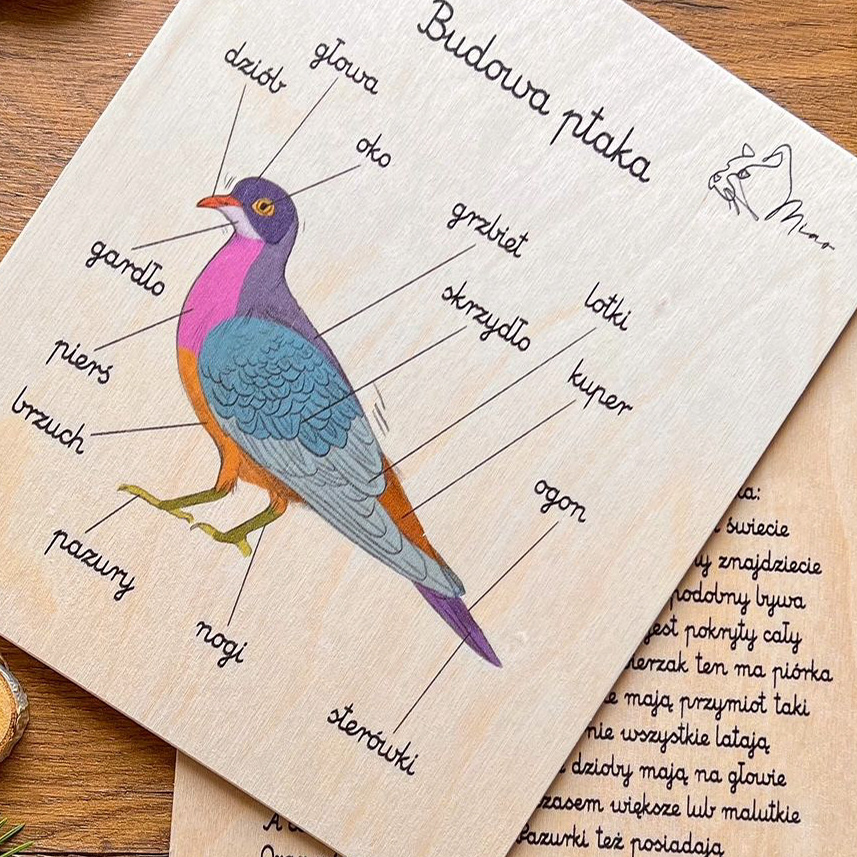 Budowa ptaka
Miao
dziób
głowa
oko
grzbiet
gardło
skrzydło
lotki
pierś
kuper
brzuch
ogon
pazury
nogi
sterówki
świecie
znajdziecie
podobny bywa
jest pokryty cały
ten ma piórka
mają przymiot taki
nie wszystkie latają
dzioby mają na głowie
czasem większe lub malutkie
Pazurki też posiadają